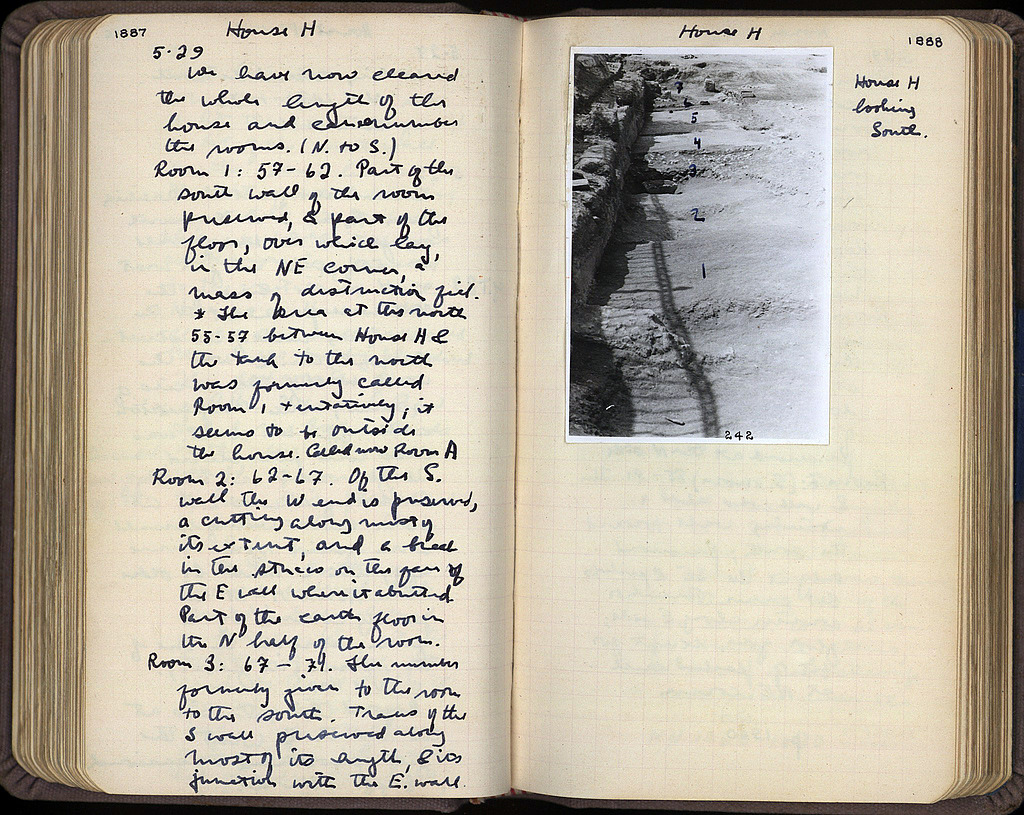 1887
House H
5.29
We have now cleared
the whole length of the
house and can renumber
the rooms. (N. to S.)
Room 1: 57-62. Part of the
south wall of the room
preserved, & part of the
floor, over which lay,
in the NE corner, a
mass of destruction fill.
* The area at the north
55-57 between House H &
the tank to the north
was formerly called
Room 1 tentatively; it
seems to be outside
the house. Called now Room A
Room 2: 62-67. Of the S.
wall the W end is preserved,
a cutting along most of
its extent, and a break
in the stucco on the face of
the E wall where it abutted
Part of the earth floor in
the N half of the room.
Room 3: 67-71. The number
formerly given to the room
to the south. Traces of the
S wall preserved along
most of its length, & its
junction with the E. wall.
House H
1888
7
6
5
4
3
2
1
242
House H
looking
South.